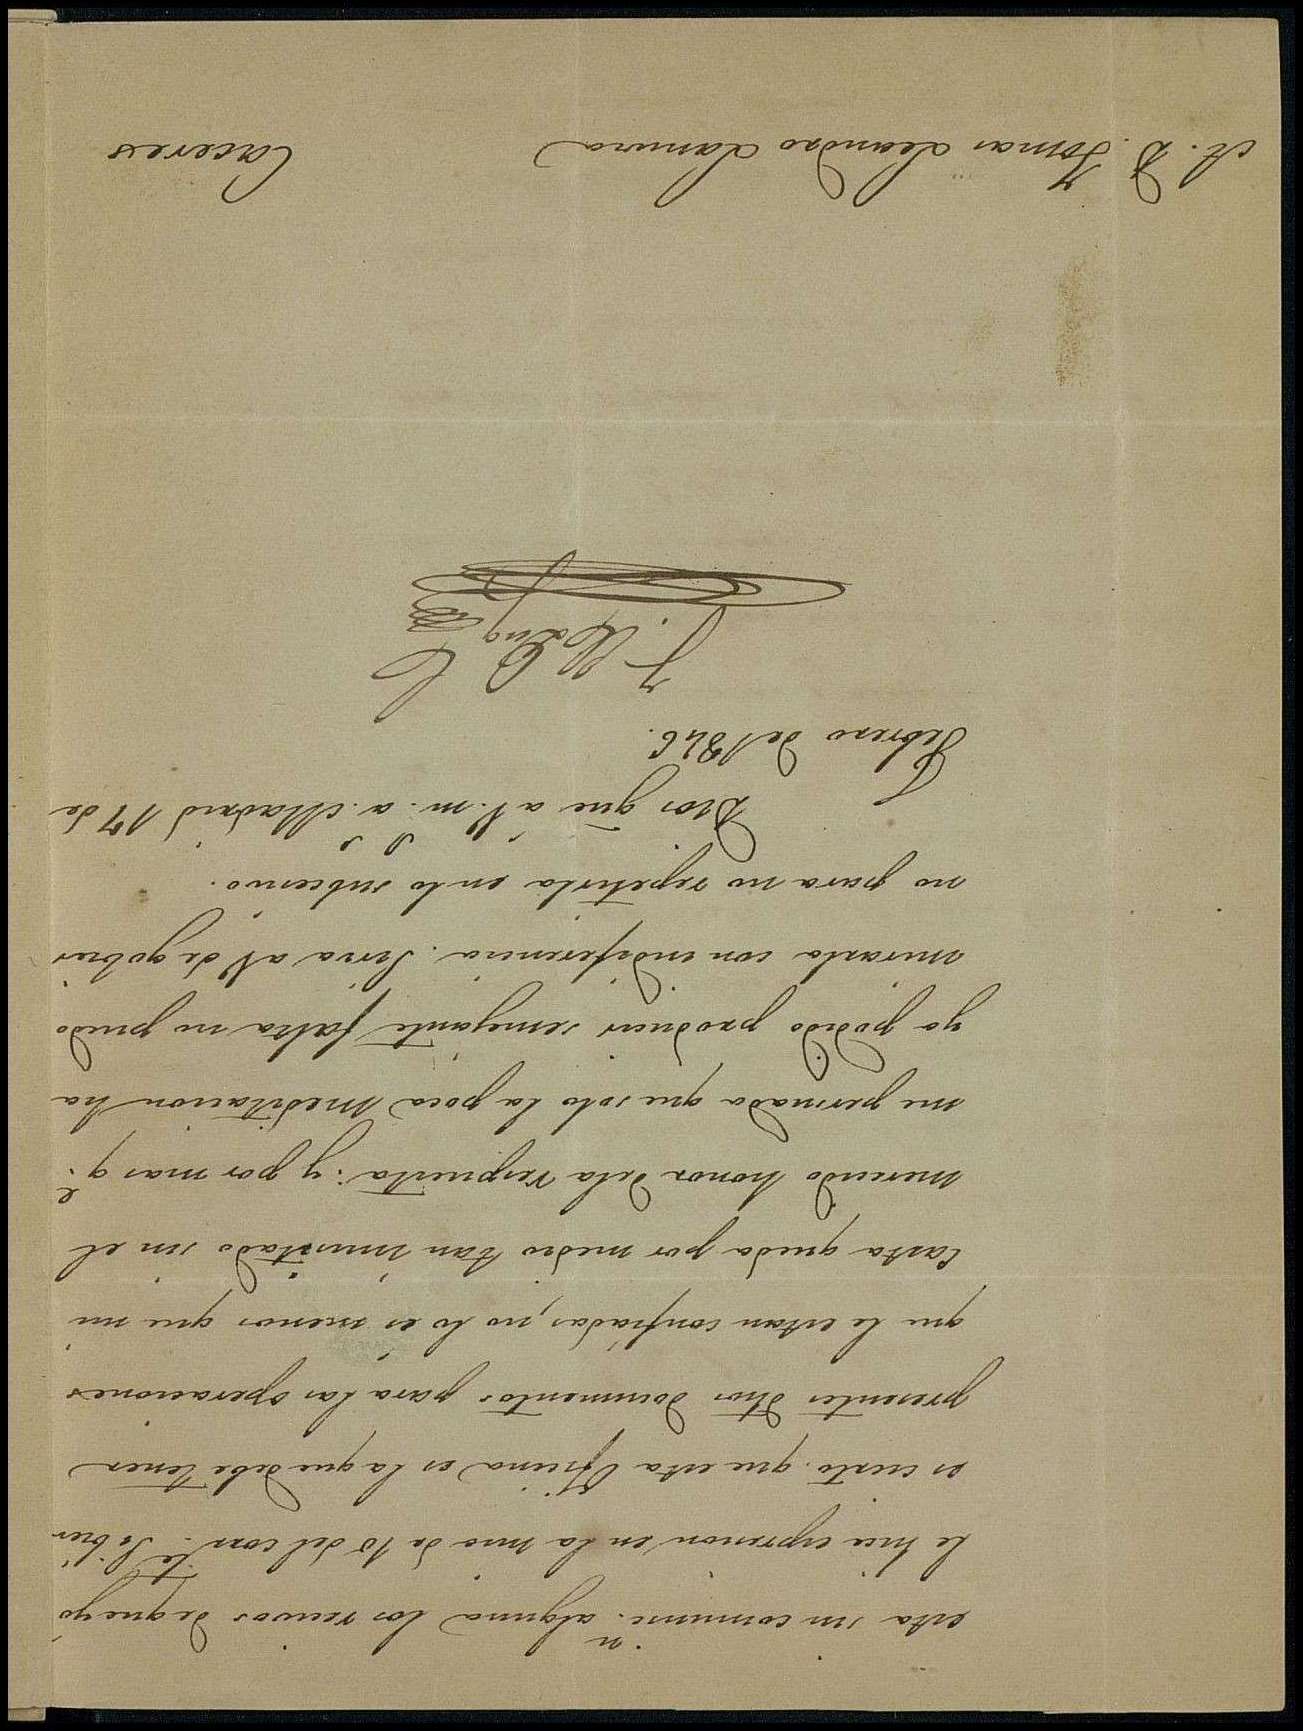 esta sin comunic.n alguna los recivos de que yo
le hice espresion en la mia de 10 del corr.te Si bien
es cierto que esta Oficina es la que debe tener
presentes dhos documentos para las operaciones
que le estan confiadas, no lo es menos que mi
Carta queda por medio tan inusitado sin el
merecido honor dela respuesta: y por mas q.e
me persuada que solo la poca meditacion ha
ya podido producir semejante falta no puedo
mirarla con indiferencia. Sirva a V. de gobier
no para no repetirla en lo subcesivo.
Dios gue a V. m. a. Madrid 17 de
Febrero de 1846.
A. D. Tomas Leandro Lamora Caceres